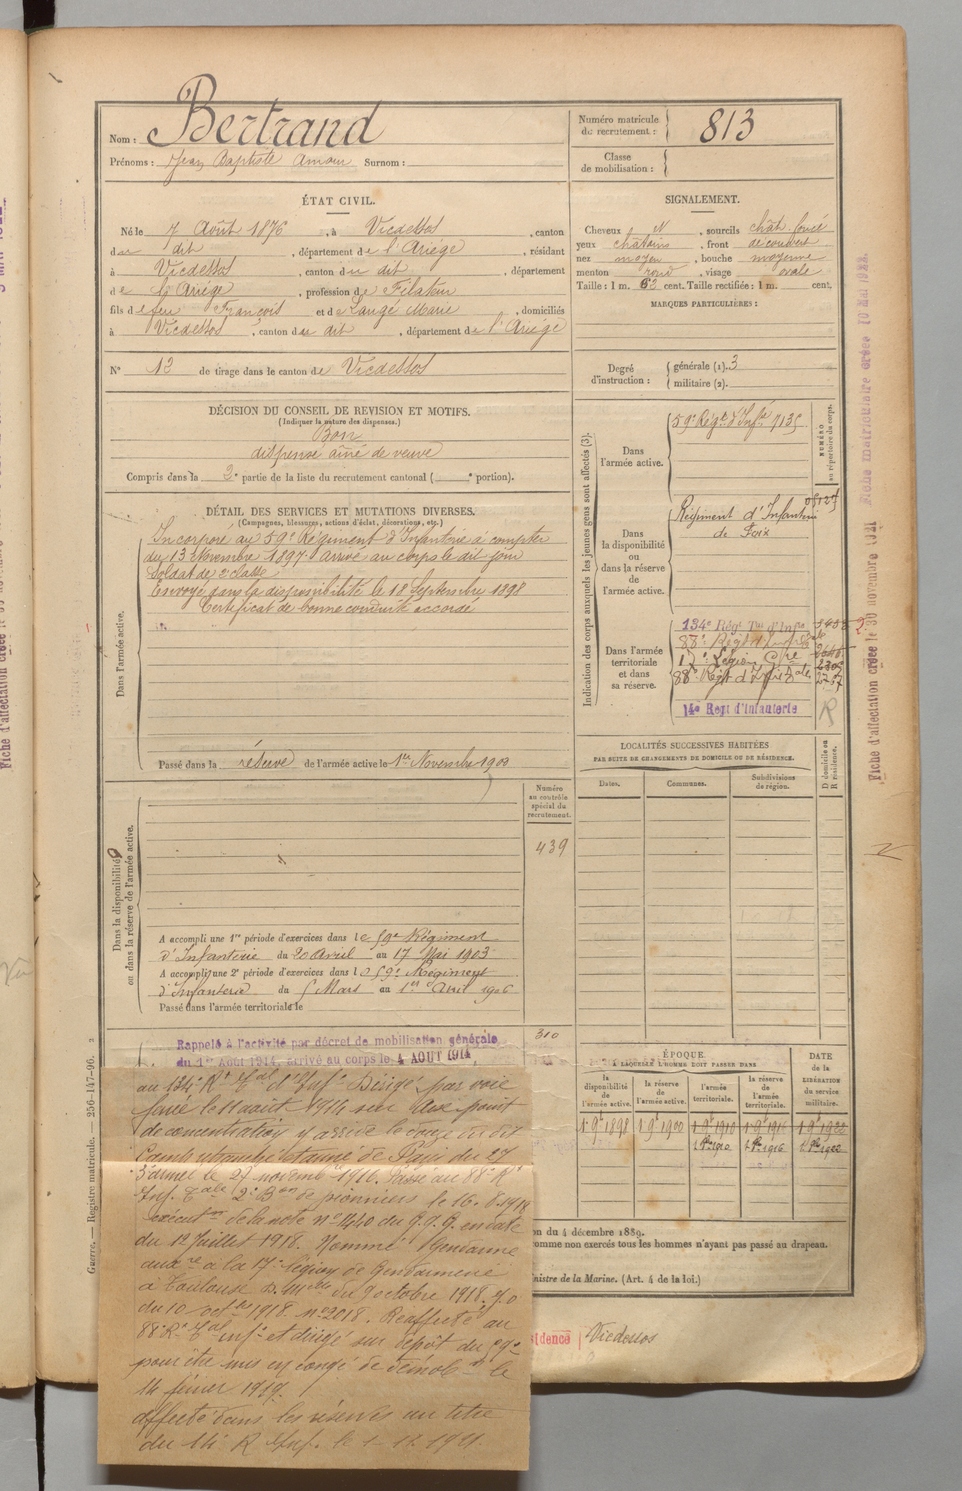 Nom : Bertrand
Prénoms : Jean Baptiste Amour Surnom :
Numéro matricule du recrutement : 813
Classe de mobilisation :
ÉTAT CIVIL.
Né le 7 Août 1876, à Vicdessos, canton
du dit, département de l'Ariège, résidant
à Vicdessos, canton du dit, département
de l'Ariège, profession de Filateur
fils de feu François et de Laugé Marie, domiciliés
à Vicdessos, canton du dit, département de l'Ariège
N° 12 de tirage dans le canton de Vicdessos
SIGNALEMENT.
Cheveux N, sourcils chât. foncé
yeux châtains, front découvert
nez moyen, bouche moyenne
menton rond, visage ovale
Taille : 1 m. 62 cent. Taille rectifiée : 1 m. cent.
MARQUES PARTICULIÈRES :
Degré d'instruction : générale (1). 3
militaire (2).
DÉCISION DU CONSEIL DE REVISION ET MOTIFS.
(Indiquer la nature des dispenses.)
Bon
dispensé aîné de veuve
Compris dans la 2e partie de la liste du recrutement cantonal ( e portion).
DÉTAIL DES SERVICES ET MUTATIONS DIVERSES.
(Campagnes, blessures, actions d'éclat, décorations, etc.)
Dans l'armée active.
Incorporé au 59e Régiment d'Infanterie à compter
du 13 Novembre 1897 arrivé au corps le dit jour
Soldat de 2e classe
Envoyé dans la disponibilité le 18 Septembre 1898
Certificat de bonne conduite accordé
Passé dans la réserve de l'armée active le 1er Novembre 1900
Indication des corps auxquels les jeunes gens sont affectés (3).
NUMÉRO au répertoire du corps.
Dans l'armée active.
59e Régt d'Infie 7135
Dans la disponibilité ou dans la réserve de l'armée active.
Régiment d'Infanterie
de Foix
Dans l'armée territoriale et dans sa réserve.
134e Régt Tal d'Infie
17e Légion
14e Regt d'Infanterie
R
LOCALITÉS SUCCESSIVES HABITÉES
PAR SUITE DE CHANGEMENTS DE DOMICILE OU DE RÉSIDENCE.
Dates. Communes. Subdivisions de région. D domicile ou R résidence.
Dans la disponibilité ou dans la réserve de l'armée active.
Numéro au contrôle spécial du recrutement.
439
A accompli une 1re période d'exercices dans le 59e Régiment
d'Infanterie du 20 Avril au 17 Mai 1903
A accompli une 2e période d'exercices dans le 59e Régiment
d'Infanterie du 5 Mars au 1er Avril 1906
Passé dans l'armée territoriale le
310
Rappelé à l'activité par décret de mobilisation générale
du 1er Août 1914, arrivé au corps le 4 AOUT 1914
au 134e Rt Tal d'Infie Dirigé par voie
ferrée le 11 août 1914 sur Aux point
de concentration y arrive le douze du dit
27 novembre 1916. Passé au 88e Rt
Inf. Tale 2e Bon de pionniers le 16.8.1918
exécution de la note n° 1440 du G.Q.G. en date
du 12 Juillet 1918. Nommé Gendarme
auxre à la 17e légion de Gendarmerie
à Toulouse D. Mlle du 9 octobre 1918. J.O.
du 10 octbre 1918. n° 2018. Réaffecté au
88e Rt Tal infie et dirigé sur dépôt du 59e
pour être mis en congé de démobon le
14 février 1919.
Affecté dans les réserves au titre
du 14e R Inf. le 1-11-1921.
ÉPOQUE
À LAQUELLE L'HOMME DOIT PASSER DANS
la disponibilité de l'armée active. la réserve de l'armée active. l'armée territoriale. la réserve de l'armée territoriale.
DATE de la LIBÉRATION du service militaire.
1 9bre 1898 1 9bre 1900 1 9bre 1910 1 9bre 1916 1 9bre 1922
on du 4 décembre 1889.
omme non exercés tous les hommes n'ayant pas passé au drapeau.
inistre de la Marine. (Art. 4 de la loi.)
sidence Vicdessos
Guerre. — Registre matricule. — 256-147-96. 2
Fiche d'affectation créée le 30 novembre 1921
Fiche matriculaire créée 10 Mai 1922.